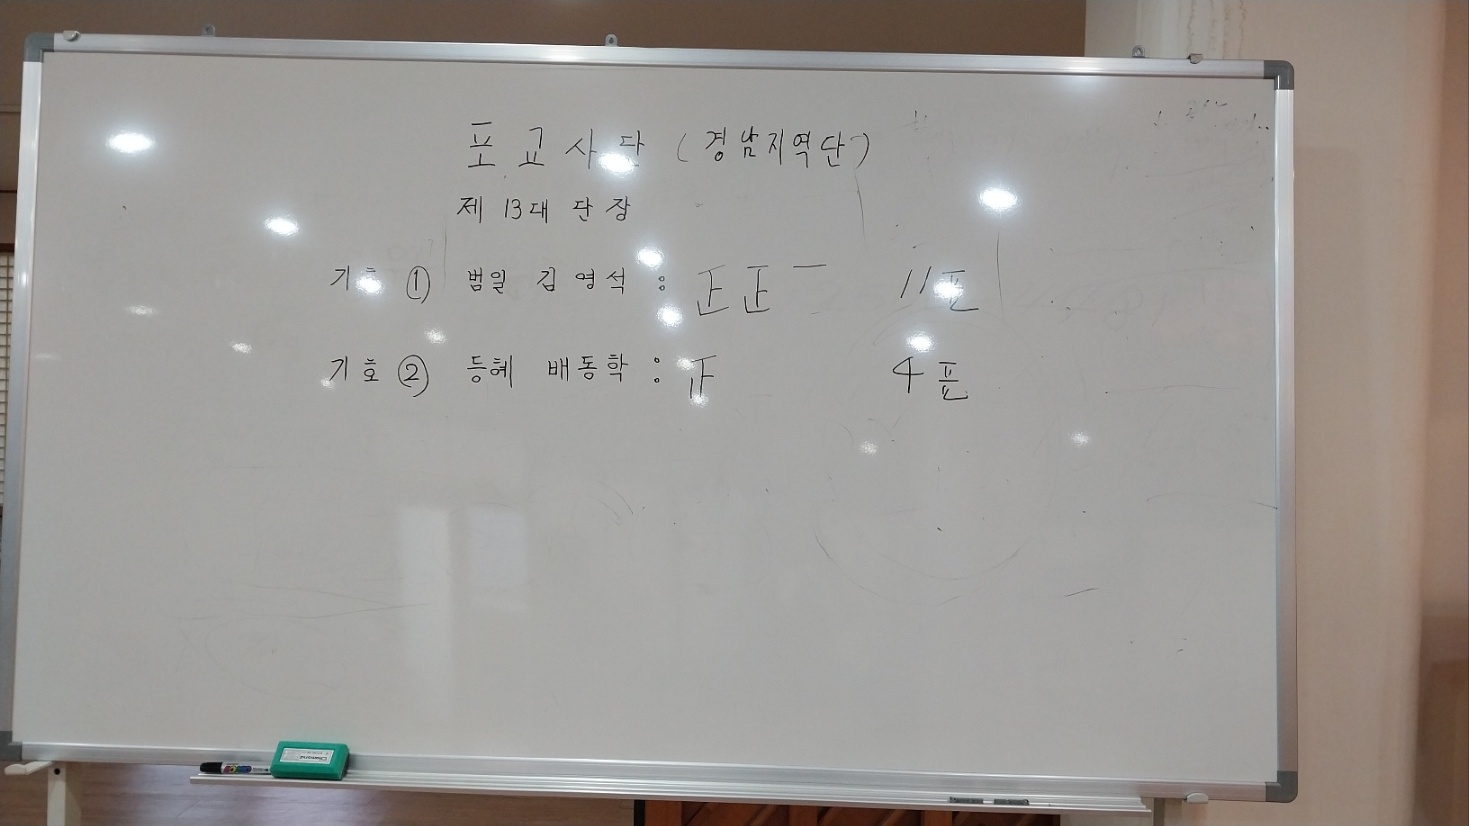 포교사단 (경남지역단)
제 13대 단장
기호 ① 범일 김영석 : 正正一 11표
기호 ② 등혜 배동학 : 正 4표